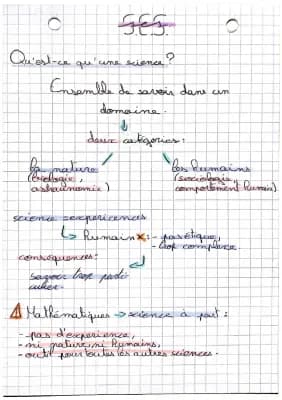 SES
Qu'est-ce qu'une science?
Ensemble de savoir dans un
domaine.
deux catégories:
la nature
(écologie,
astronomie)
les humains
(sociologie,
comportement humain)
science = expériences
↳ humain ✗: - pas étique,
- trop complexe.
conséquences:
savoir trop parti
culier.
⚠ Mathématiques → science à part:
- pas d'experience,
- ni nature, ni humains,
- outil pour toutes les autres sciences.